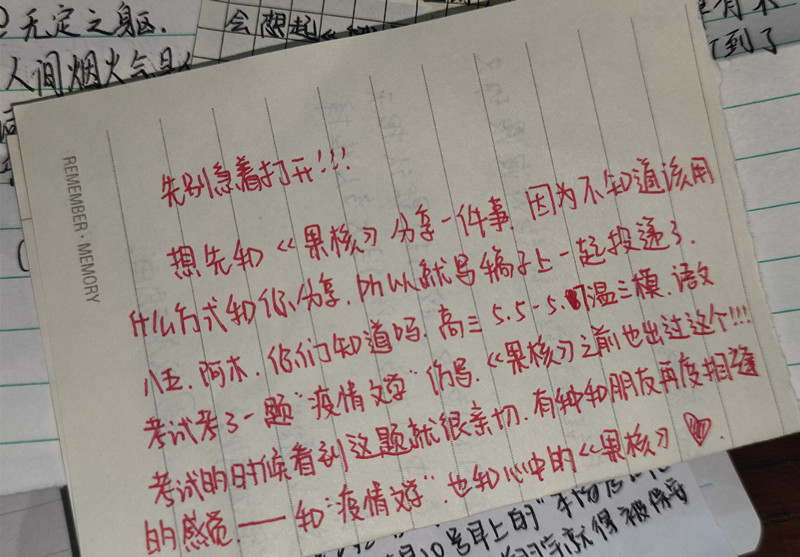 无定之躯.
会想起
人间烟火气
到了
REMEMBER · MEMORY
先别急着打开!!!
想先和《果核》分享一件事. 因为不知道该用
什么方式和你分享. 所以就写稿子上一起投递了.
八五. 阿木. 你们知道吗. 高三 5.5-5.7温三模. 语文
考试考了一题"疫情文学"仿写. 《果核》之前也出过这个!!!
考试的时候看到这题就很亲切. 有种和朋友再度相逢
的感觉.——和"疫情文学". 也和心中的《果核》
号早上的"